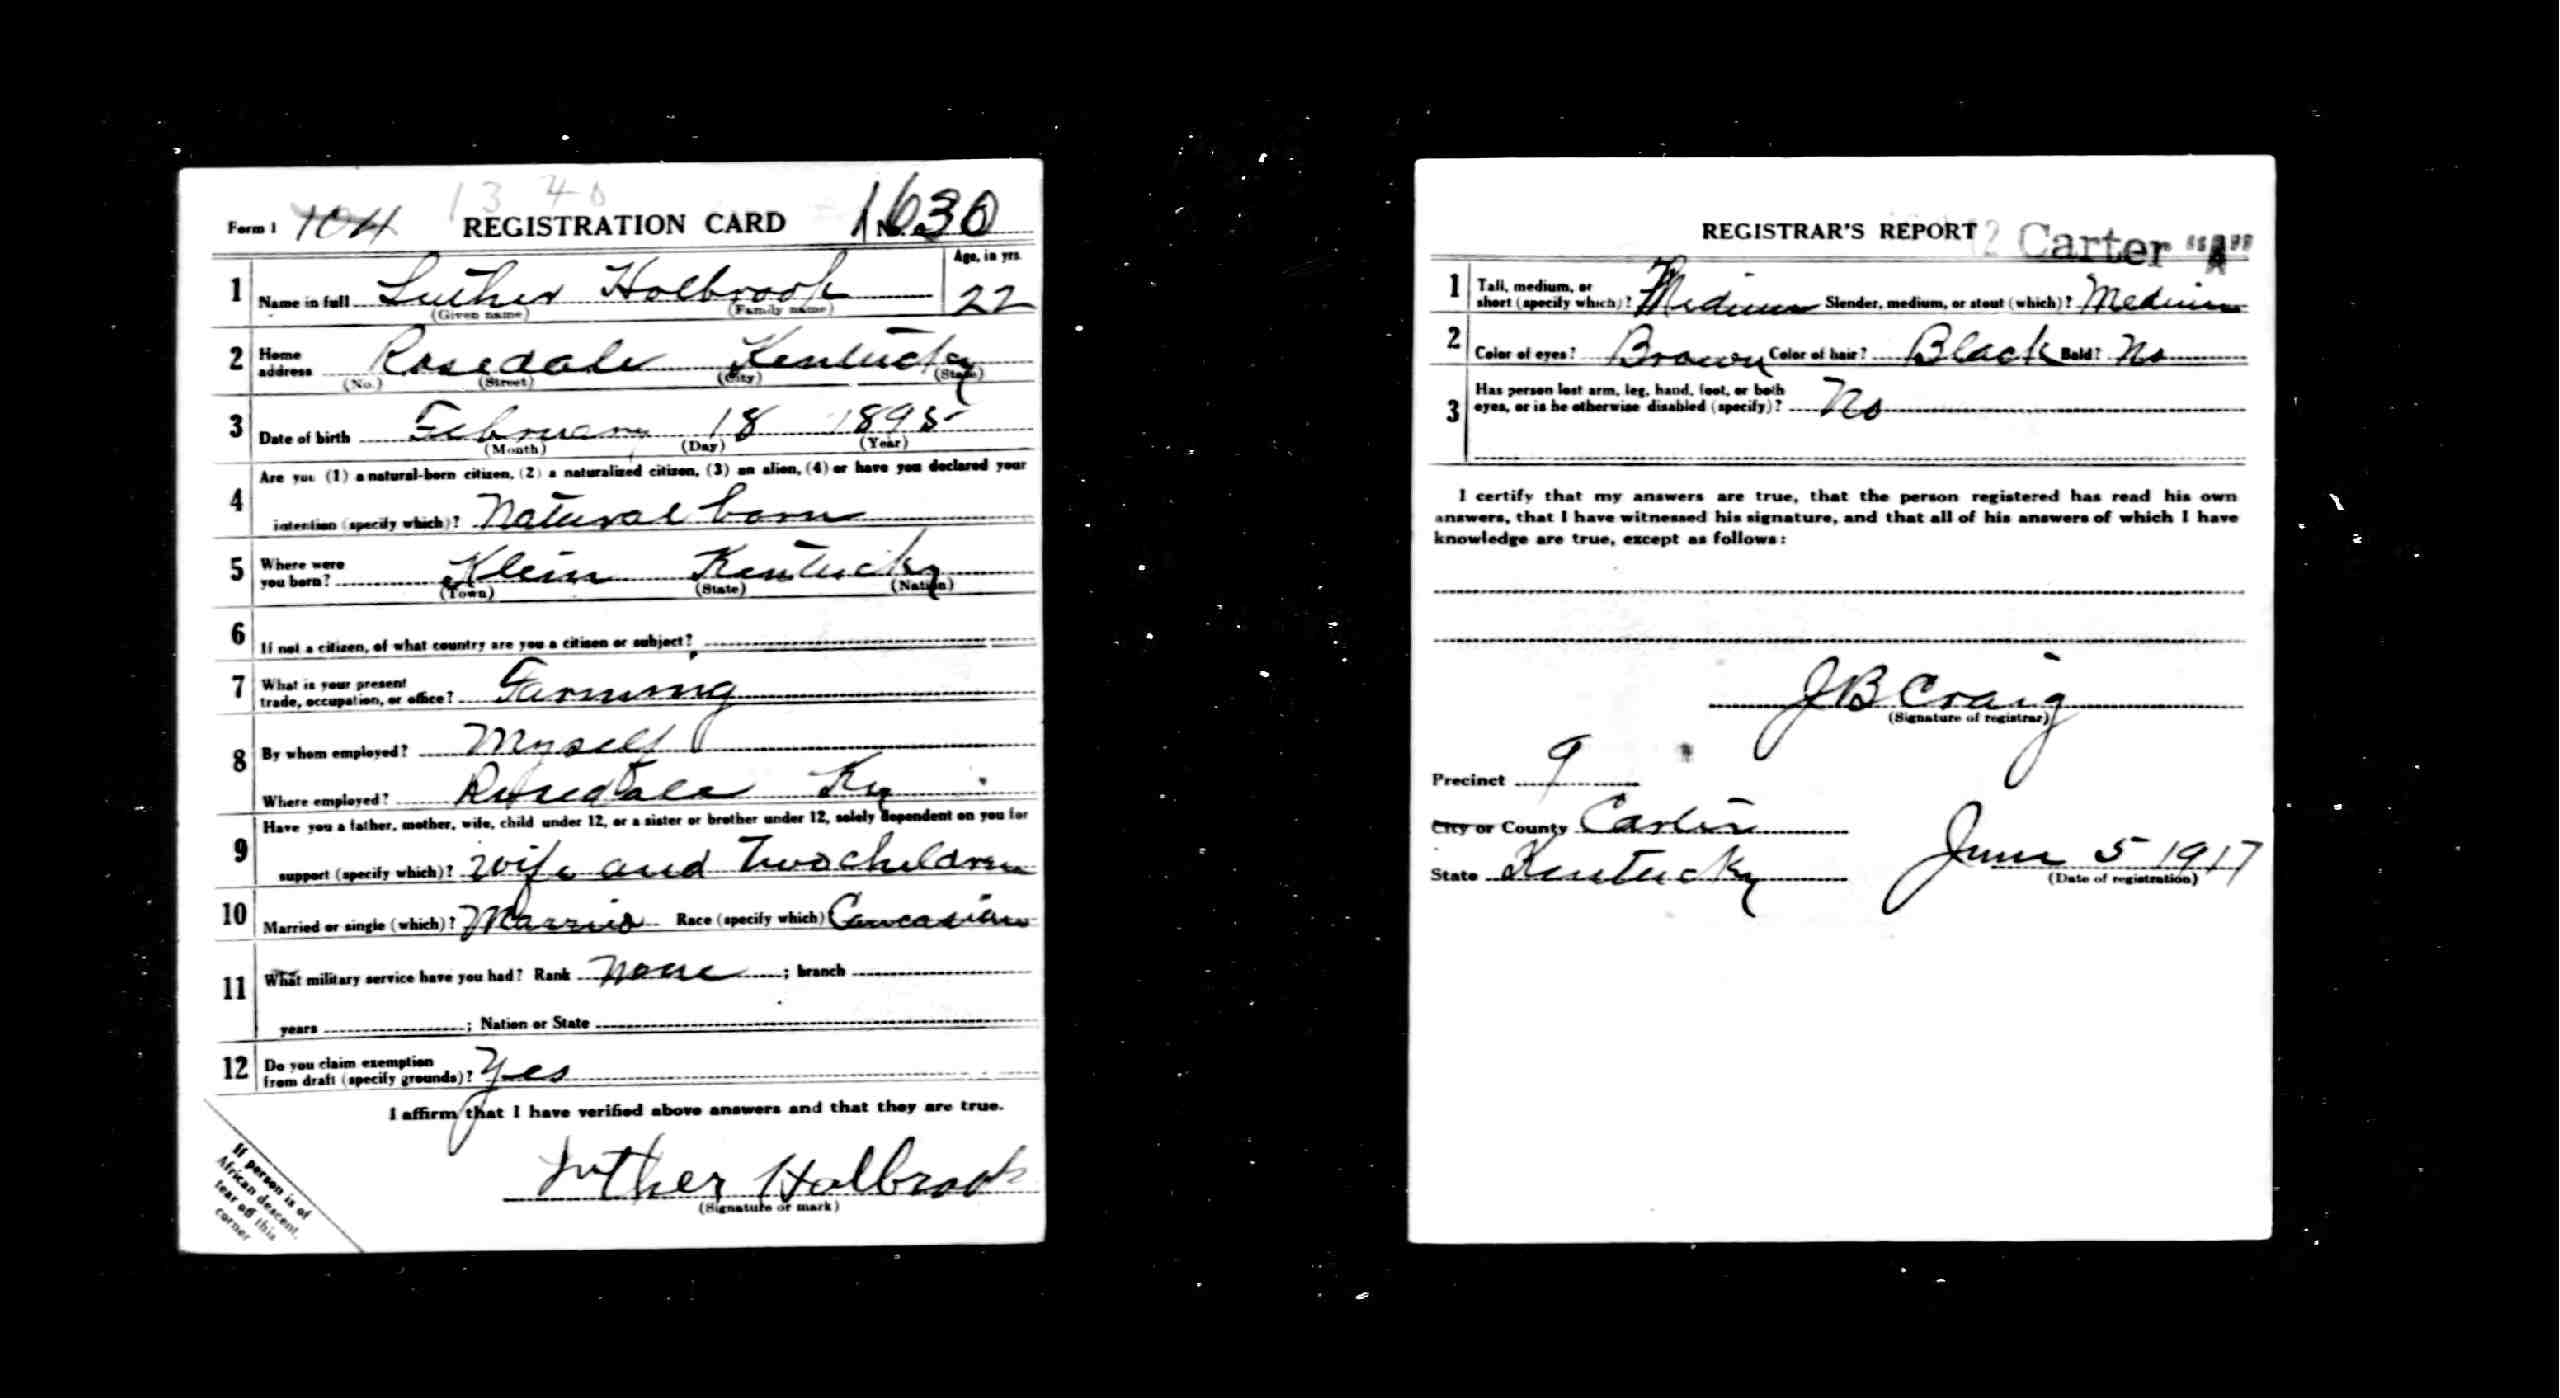 13 40
Form 1 104 REGISTRATION CARD No. 1630
Age, in yrs.
1 Name in full Luther Holbrook 22
(Given name) (Family name)
2 Home address Rosedale Kentucky
(No.) (Street) (City) (State)
3 Date of birth February 18 1895
(Month) (Day) (Year)
Are you (1) a natural-born citizen, (2) a naturalized citizen, (3) an alien, (4) or have you declared your
4 intention (specify which)? Natural born
5 Where were you born? Klein Kentucky
(Town) (State) (Nation)
6 If not a citizen, of what country are you a citizen or subject?
7 What is your present trade, occupation, or office? Farming
8 By whom employed? Myself
Where employed? Rosedale Ky
Have you a father, mother, wife, child under 12, or a sister or brother under 12, solely dependent on you for
9 support (specify which)? wife and two children
10 Married or single (which)? Married Race (specify which) Caucasian
11 What military service have you had? Rank none ; branch
years ; Nation or State
12 Do you claim exemption from draft (specify grounds)? Yes
I affirm that I have verified above answers and that they are true.
Luther Holbrook
(Signature or mark)
If person is of
African descent,
tear off this
corner
REGISTRAR'S REPORT Carter "A"
1 Tall, medium, or short (specify which)? Medium Slender, medium, or stout (which)? Medium
2 Color of eyes? Brown Color of hair? Black Bald? No
3 Has person lost arm, leg, hand, foot, or both eyes, or is he otherwise disabled (specify)? No
I certify that my answers are true, that the person registered has read his own
answers, that I have witnessed his signature, and that all of his answers of which I have
knowledge are true, except as follows:
J B Craig
(Signature of registrar)
Precinct 9
City or County Carter
State Kentucky June 5 1917
(Date of registration)